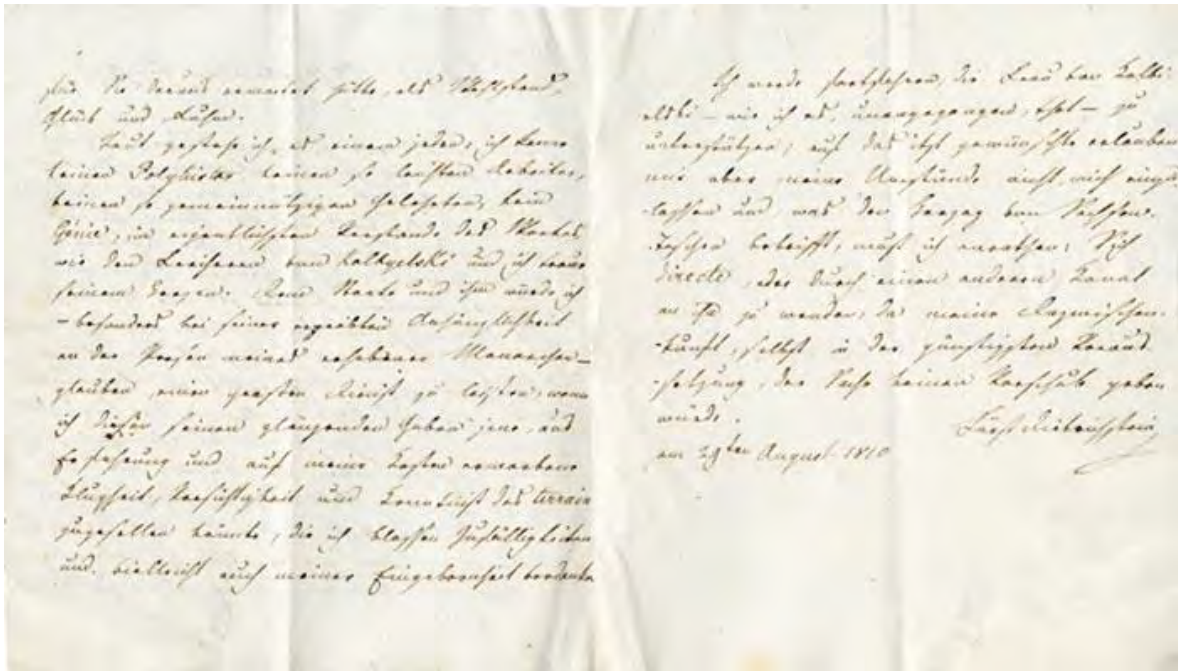 für Sie daraus erwartet hätte, als Wohlstand,
Glück und Ruhm.
Laut gestehe ich es einem jeden, ich kenne
keinen Polyhistor keinen so leichten Arbeiter,
keinen so gemeinnützigen Gelehrten, kein
Génie, im eigentlichsten Verstande des Wortes
wie den Freiherrn von Kalbyelski und ich traue
seinem Herzen. Dem Staate und ihm würde ich
– besonders bei seiner erprobten Anhänglichkeit
an der Person meines erhabenen Monarchen –
glauben, einen großen Dienst zu leisten, wenn
ich diesen seinen glänzenden Gaben jene, aus
Erfahrung und auf meine Kosten erworbene
Klugheit, Vorsichtigkeit und Kenntniß des terrain
zugesellen könnte, die ich bloßen Zufälligkeiten
und vielleicht auch meiner Eingebornheit verdanke
Ich werde fortfahren, die Frau von Kalbi-
elski – wie ich es, unangegangen, that – zu
unterstützen; auf das itzt gewünschte erlauben
mir aber meine Umstände nicht, mich einzu-
-lassen und, was den Herzog von Sachsen-
Teschen betrifft, muß ich anrathen: Sich
directe, oder durch einen anderen Kanal
an Ihn zu wenden, da meine Dazwischen-
-kunft, selbst in der günstigsten Voraus-
-setzung, der Sache keinen Vorschub geben
würde.
am 29ten August 1810